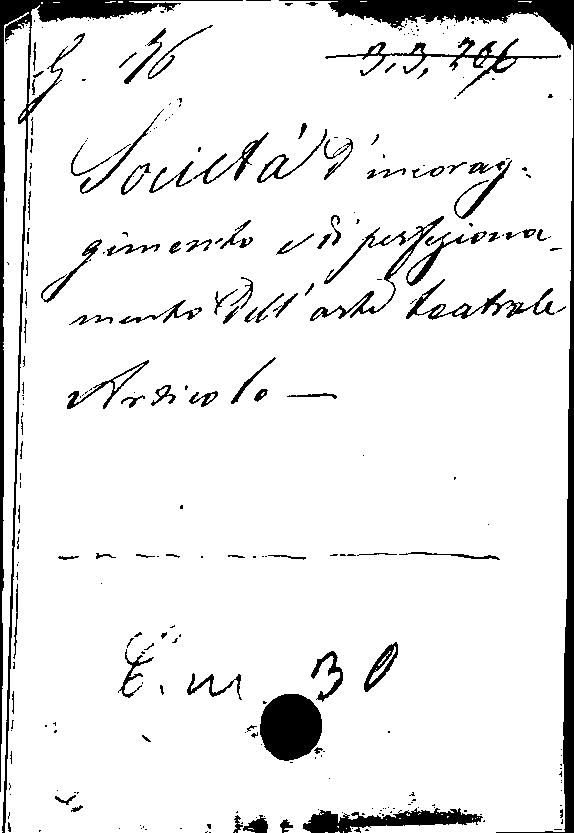 G. 36
3,3,206
Società d'incorag-
gimento e di perfeziona-
mento dell'arte teatrale
Articolo —
C. m 30